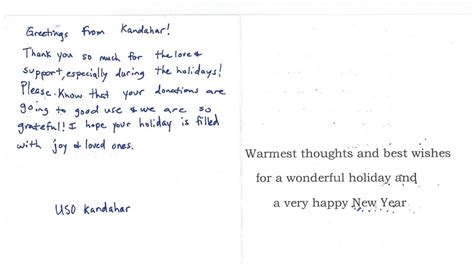 Greetings from Kandahar!
Thank you so much for the love &
support, especially during the holidays!
Please know that your donations are
going to good use & we are so
grateful! I hope your holiday is filled
with joy & loved ones.
USO Kandahar
Warmest thoughts and best wishes
for a wonderful holiday and
a very happy New Year